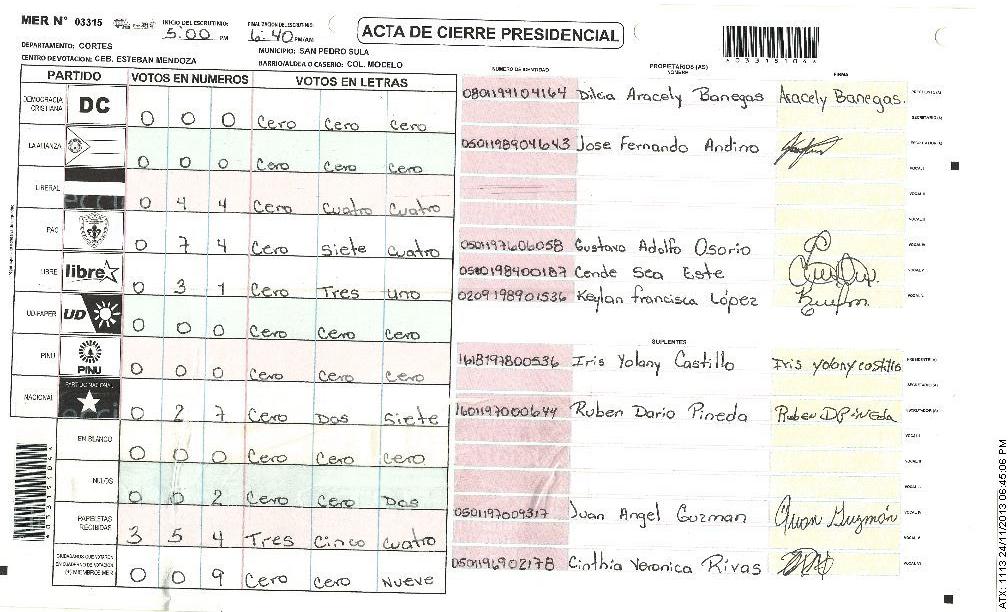 MER N° 03315 INICIO DEL ESCRUTINIO: 5:00 PM FINALIZACION DEL ESCRUTINIO: 6:40 PM/AM
ACTA DE CIERRE PRESIDENCIAL
DEPARTAMENTO: CORTES MUNICIPIO: SAN PEDRO SULA
CENTRO DE VOTACION: CEB. ESTEBAN MENDOZA BARRIO/ALDEA O CASERIO: COL. MOCELO
PARTIDO VOTOS EN NUMEROS VOTOS EN LETRAS
DEMOCRACIA CRISTIANA DC 0 0 0 Cero Cero Cero
LA ALIANZA 0 0 0 Cero Cero Cero
LIBERAL 0 4 4 Cero Cuatro Cuatro
PAC 0 7 4 Cero Siete Cuatro
LIBRE libre 0 3 1 Cero Tres uno
UD-FAPER UD 0 0 0 Cero Cero Cero
PINU PINU 0 0 0 Cero Cero Cero
NACIONAL PARTIDO NACIONAL 0 2 7 Cero Dos Siete
EN BLANCO 0 0 0 Cero Cero Cero
NULOS 0 0 2 Cero Cero Dos
PAPELETAS RECIBIDAS 3 5 4 Tres Cinco Cuatro
CIUDADANOS QUE VOTARON EN CUADERNO DE VOTACION (+) MIEMBROS MER 0 0 9 Cero Cero Nueve
NUMERO DE IDENTIDAD PROPIETARIOS (AS) NOMBRE FIRMA
0801199104164 Dilcia Aracely Banegas Aracely Banegas. PRESIDENTE (A)
SECRETARIO (A)
0501198904643 Jose Fernando Andino ESCRUTADOR (A)
VOCAL I
VOCAL II
VOCAL III
0501197606058 Gustavo Adolfo Osorio VOCAL IV
0580198400187 Cende Sea Este VOCAL V
0209198901536 Keylan francisca López VOCAL VI
SUPLENTES
1618197800536 Iris Yolany Castillo Iris yolany castillo PRESIDENTE (A)
SECRETARIO (A)
1601197000644 Ruben Dario Pineda Ruben D Pineda ESCRUTADOR (A)
VOCAL I
VOCAL II
VOCAL III
0501197009317 Juan Angel Guzman Juan Guzmán VOCAL IV
VOCAL V
0501196902178 Cinthia Veronica Rivas VOCAL VI
ATX: 1113 24/11/2013 06:45:06 PM